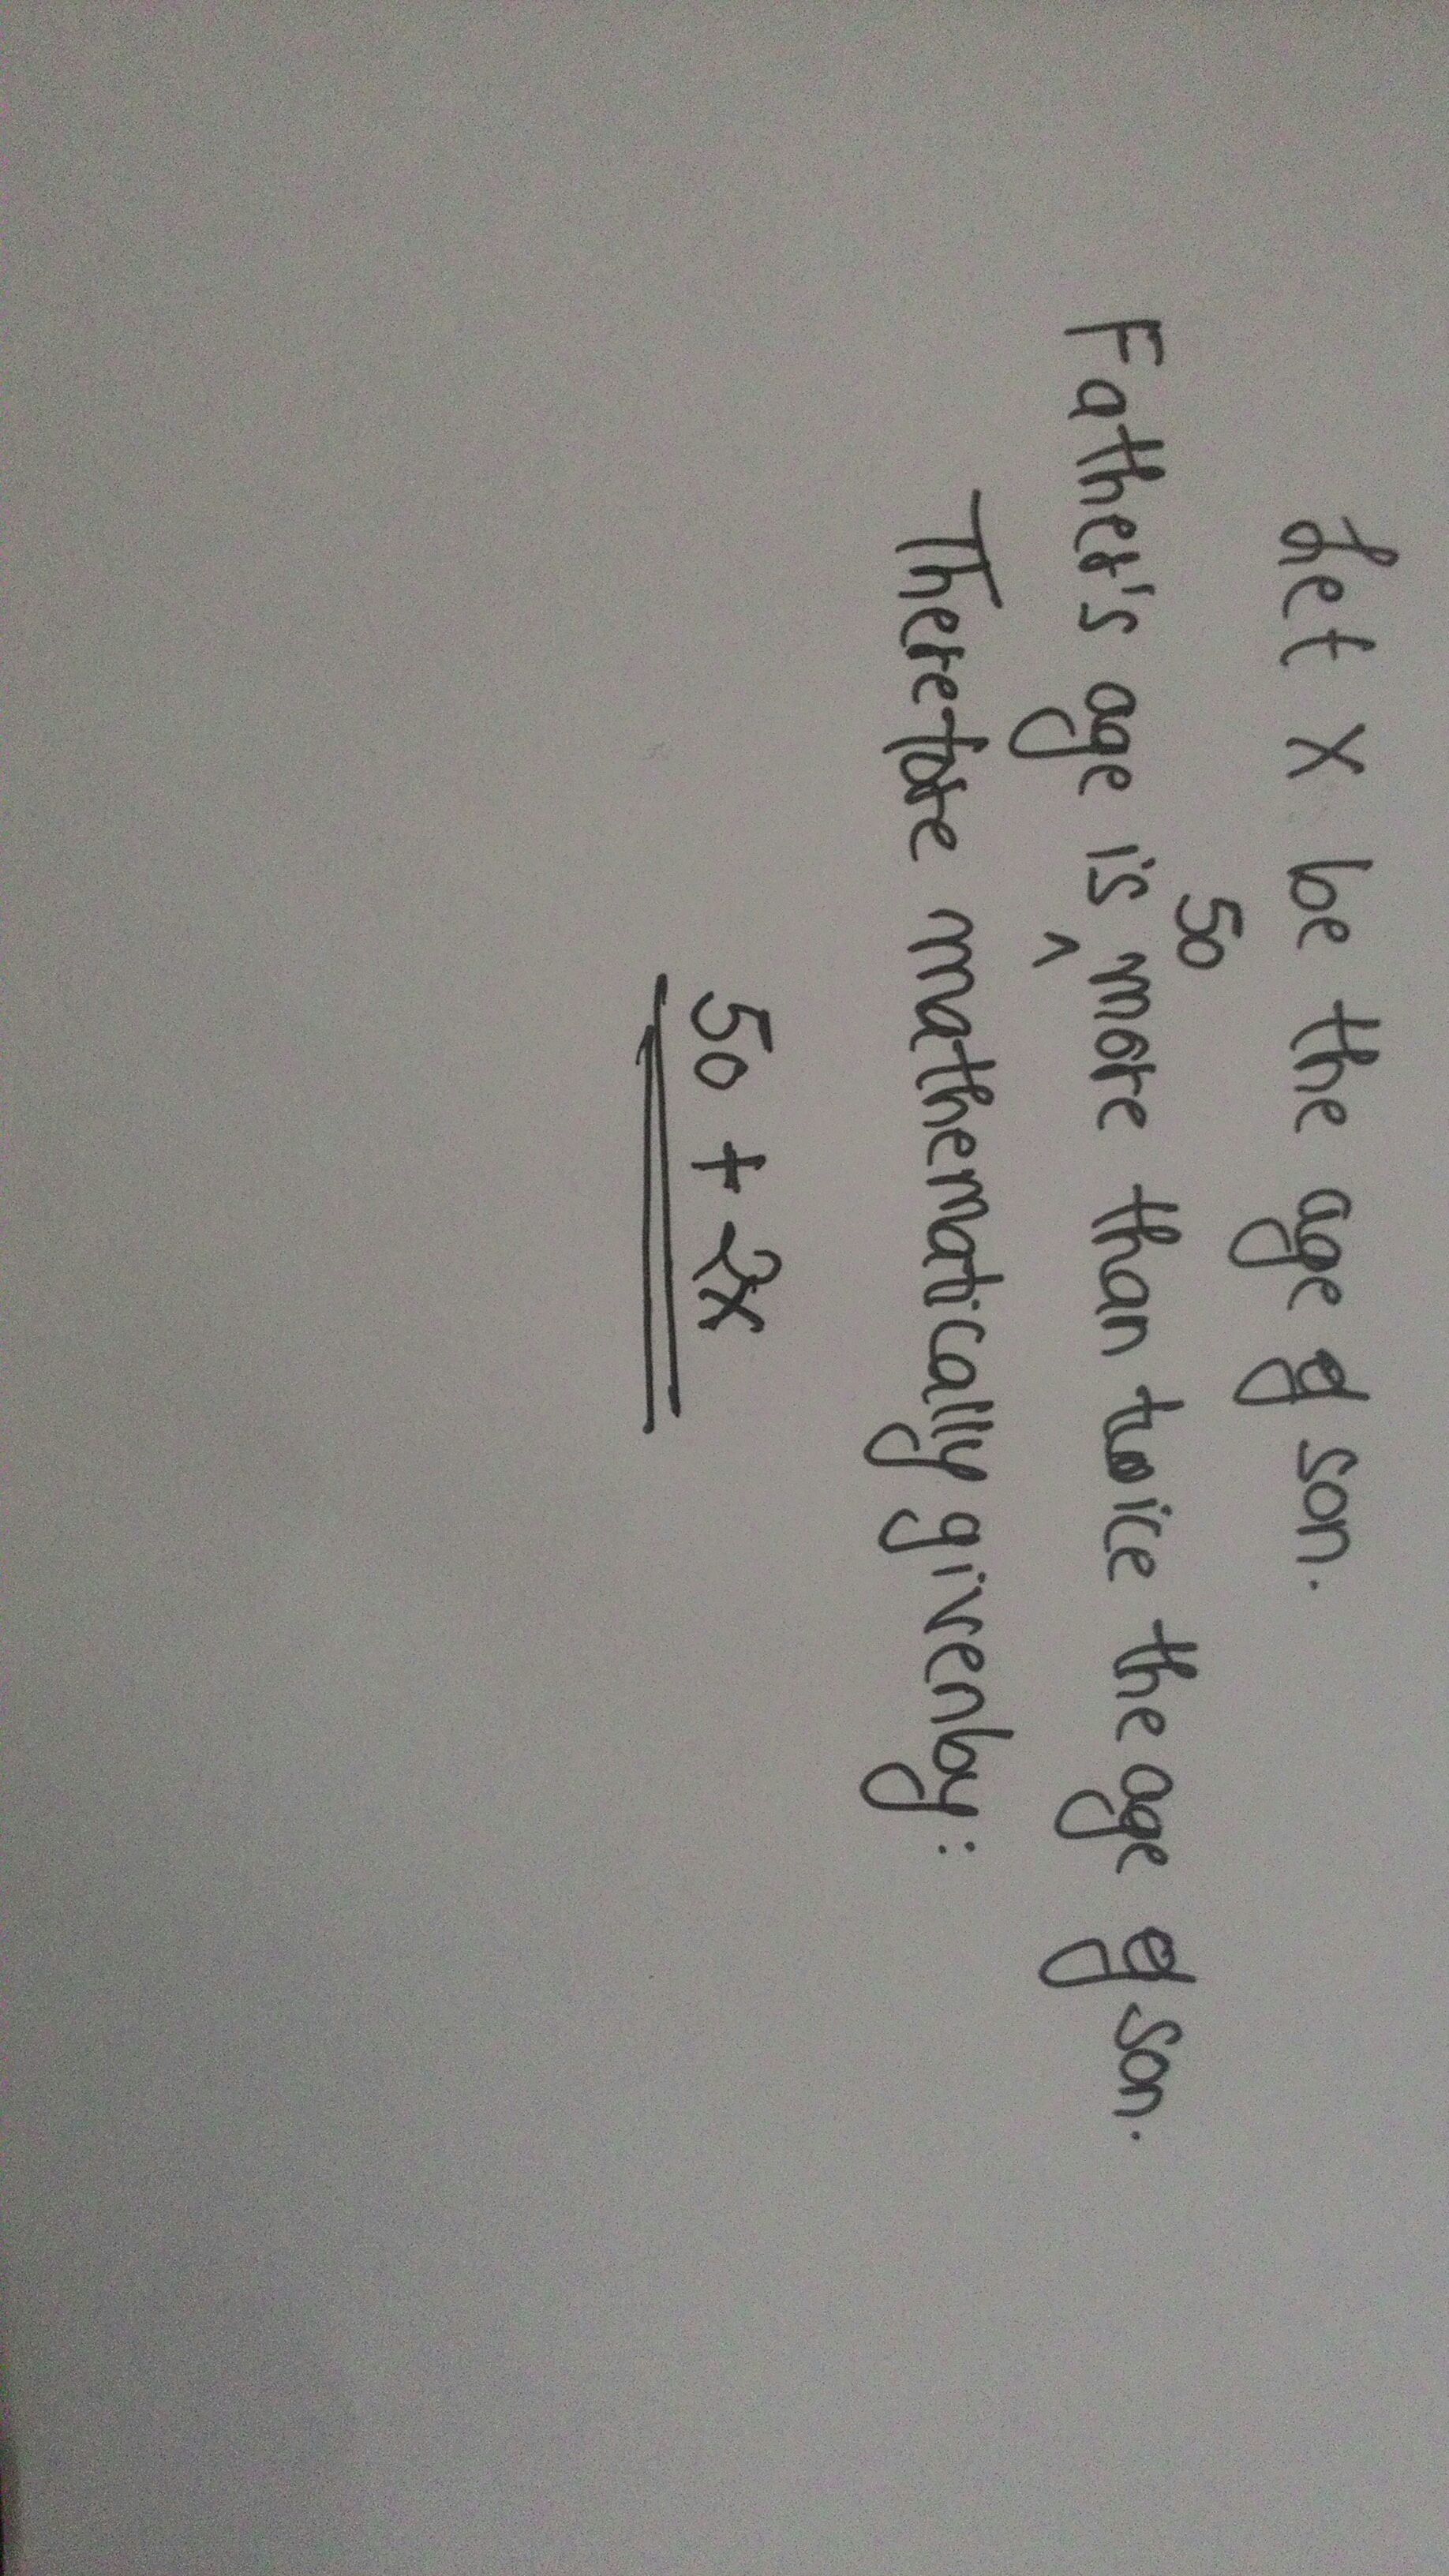 Let x be the age of son.
Father's age is 50 more than twice the age of son.
Therefore mathematically given by:
50 + 2x